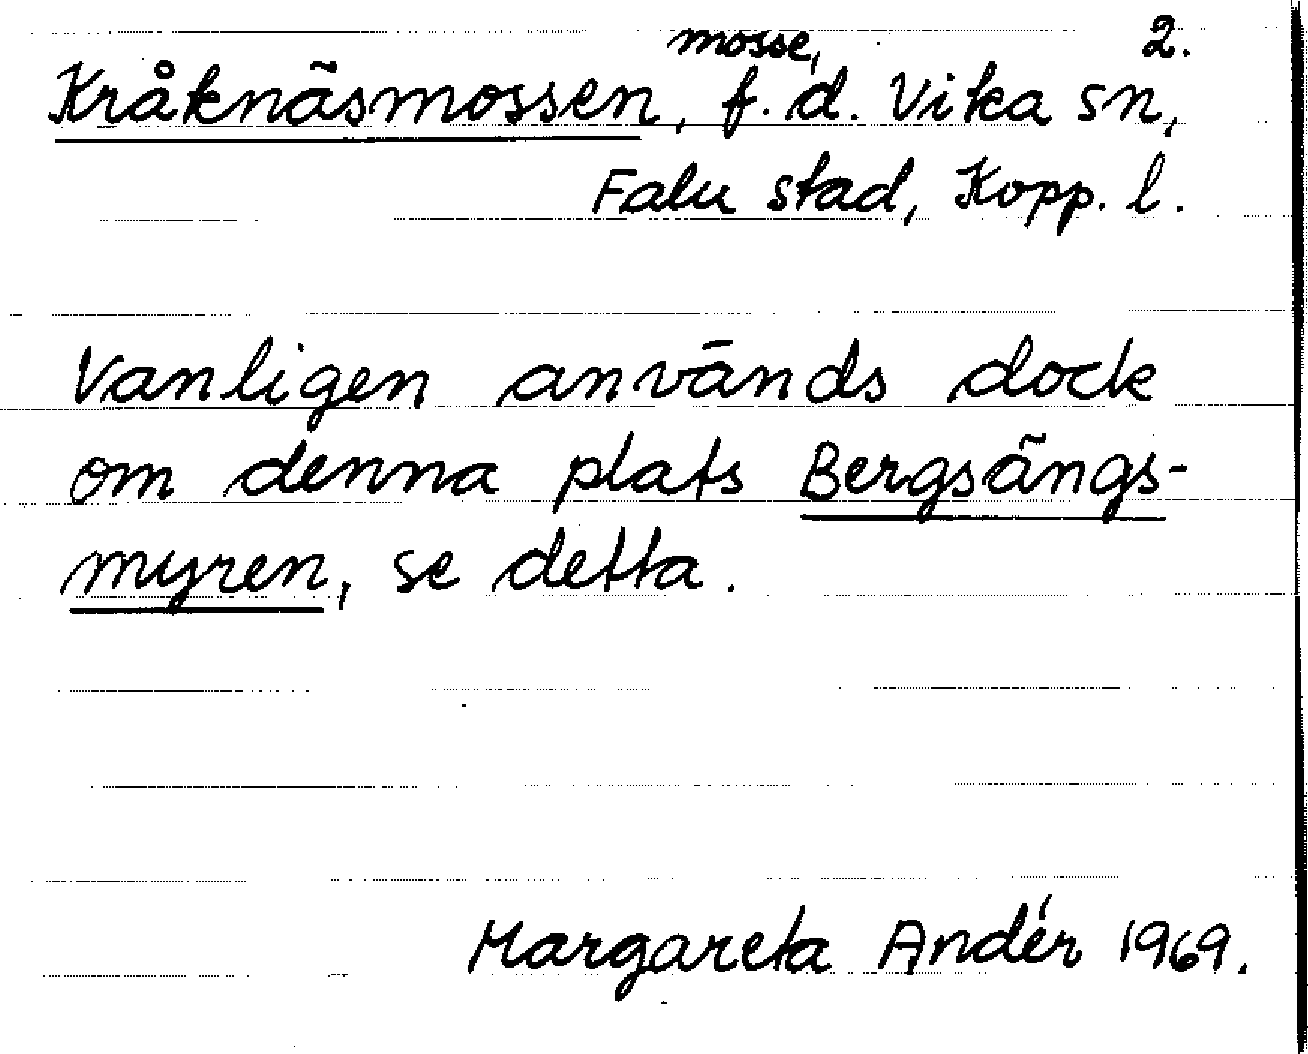 mosse, 2.
Kråknäsmossen, f.d. Vika sn,
Falu stad, Kopp. l.
Vanligen används dock
om denna plats Bergsängs-
myren, se detta.
Margareta Andér 1969.